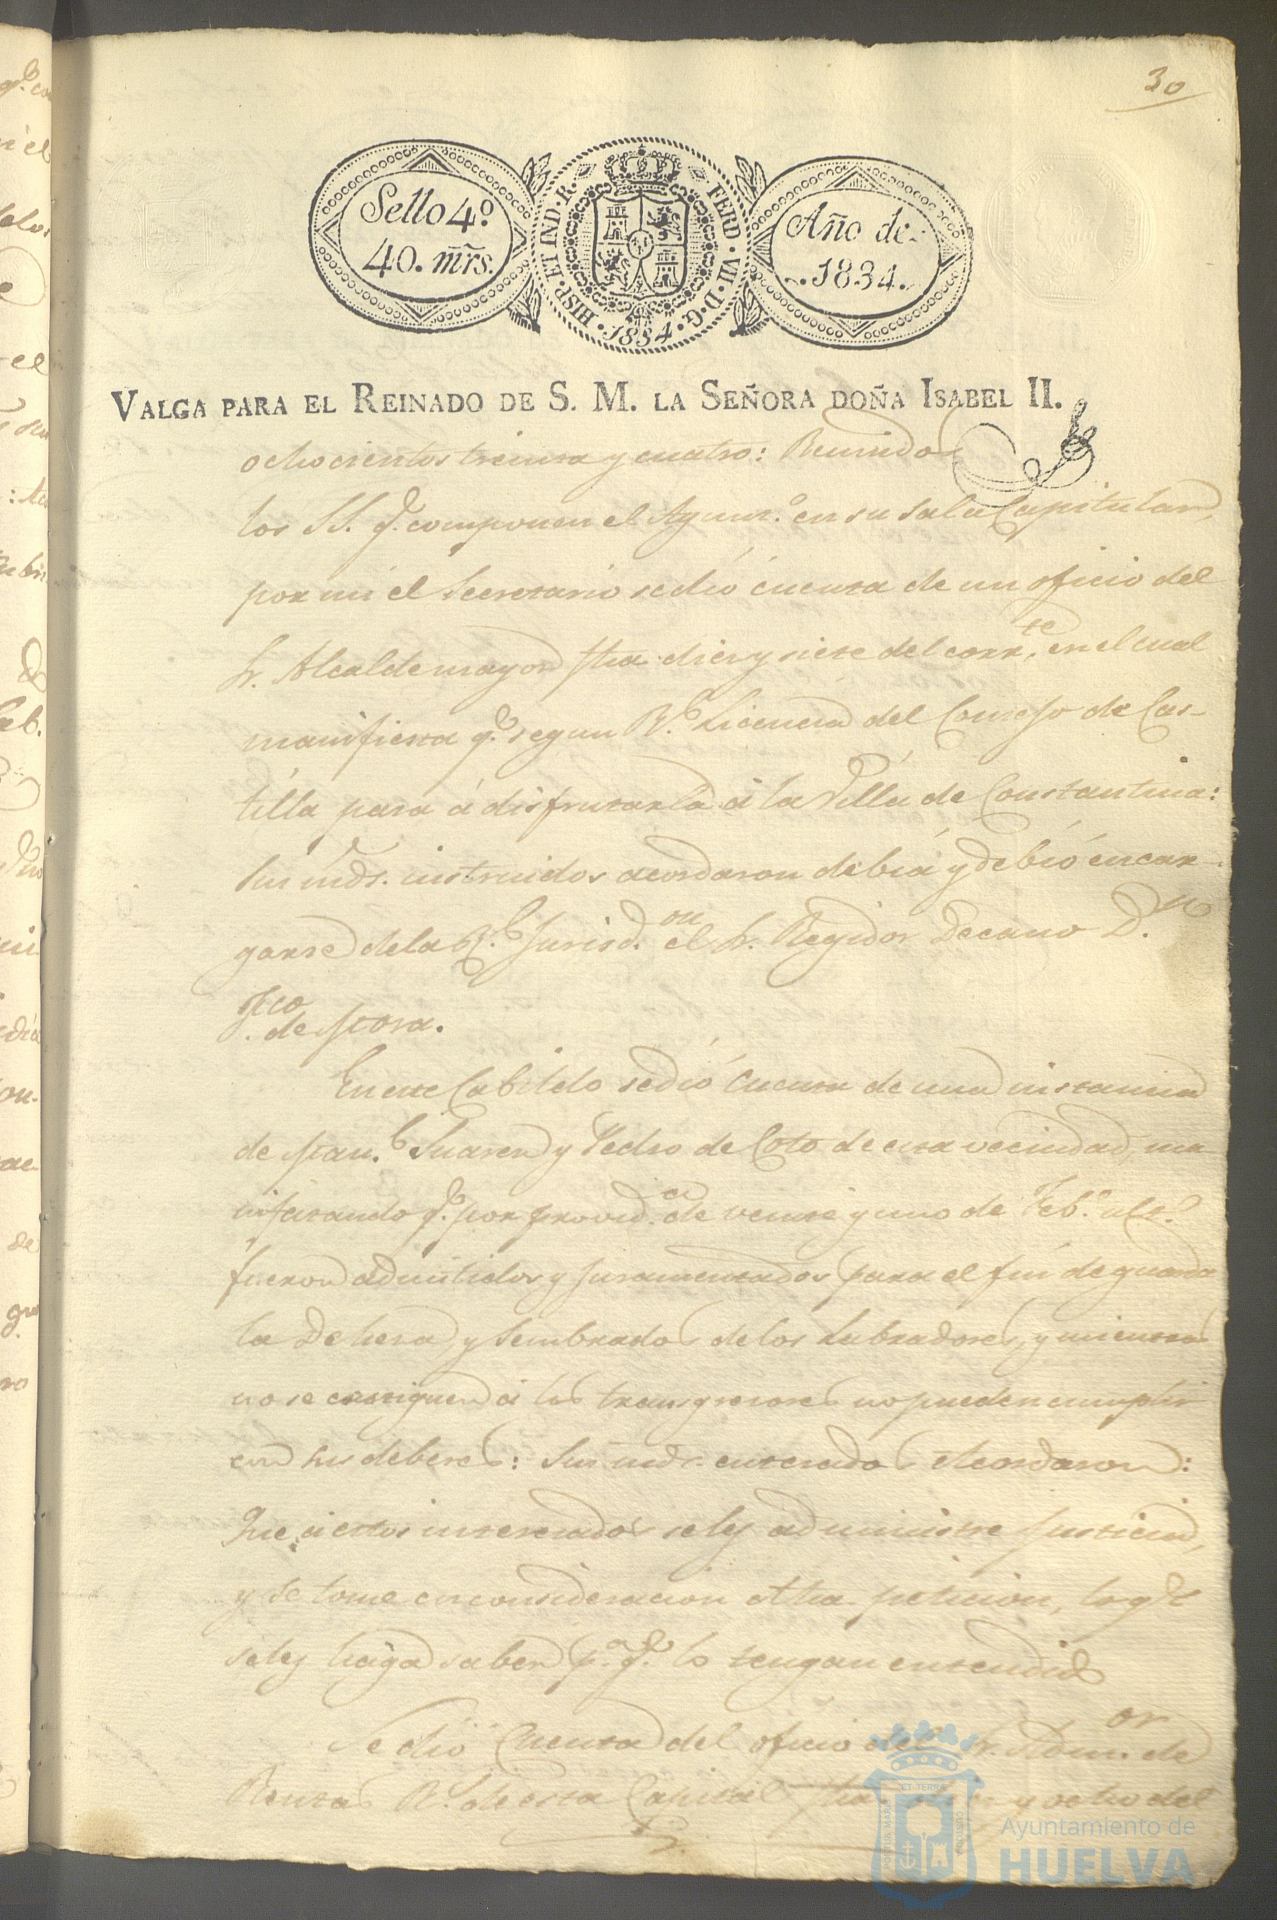 30
Sello 4º
40. mr̃s.
HISP. ET IND. R. FERD. VII. D. G. 1834.
Año de
1834.
VALGA PARA EL REINADO DE S. M. LA SEÑORA DOÑA ISABEL II.
ochocientos treinta y cuatro: Reunidos
los SS. q.e componen el Ayunt.º en su sala Capitular,
por mi el Secretario se dió cuenta de un oficio del
Sr. Alcalde mayor fha diez y siete del corr.te en el cual
manifiesta q.e segun R.l Licencia del Consejo de Cas-
tilla para á disfrutarla á la Villa de Constantina:
Sus mds. instruidos acordaron debia y debió encar-
garse de la R.l Jurisd.on el Sr. Regidor Decano D.n
Fco. de Mora.
En este Cabildo se dió Cuenta de una instancia
de Man.l Suarez y Pedro de Coto de esta vecindad, ma-
nifestando q.e por provid.a de veinte y uno de Feb.º
fueron admitidos y juramentados para el fin de guardar
la Dehesa y Sembrados de los Labradores, y mientras
no se castiguen á los transgresores no pueden cumplir
con sus deberes: Sus mds. enterados Acordaron:
Que á estos interesados se les administre Justicia,
y se tome en consideracion peticion, lo q.e
se les haga saber p.a q.e lo tengan entendido
Se dió Cuenta del oficio del Sr. Adm.or de
Rentas R.s de esta Capital fha diez y ocho del
ET TERRAE
Ayuntamiento de
HUELVA